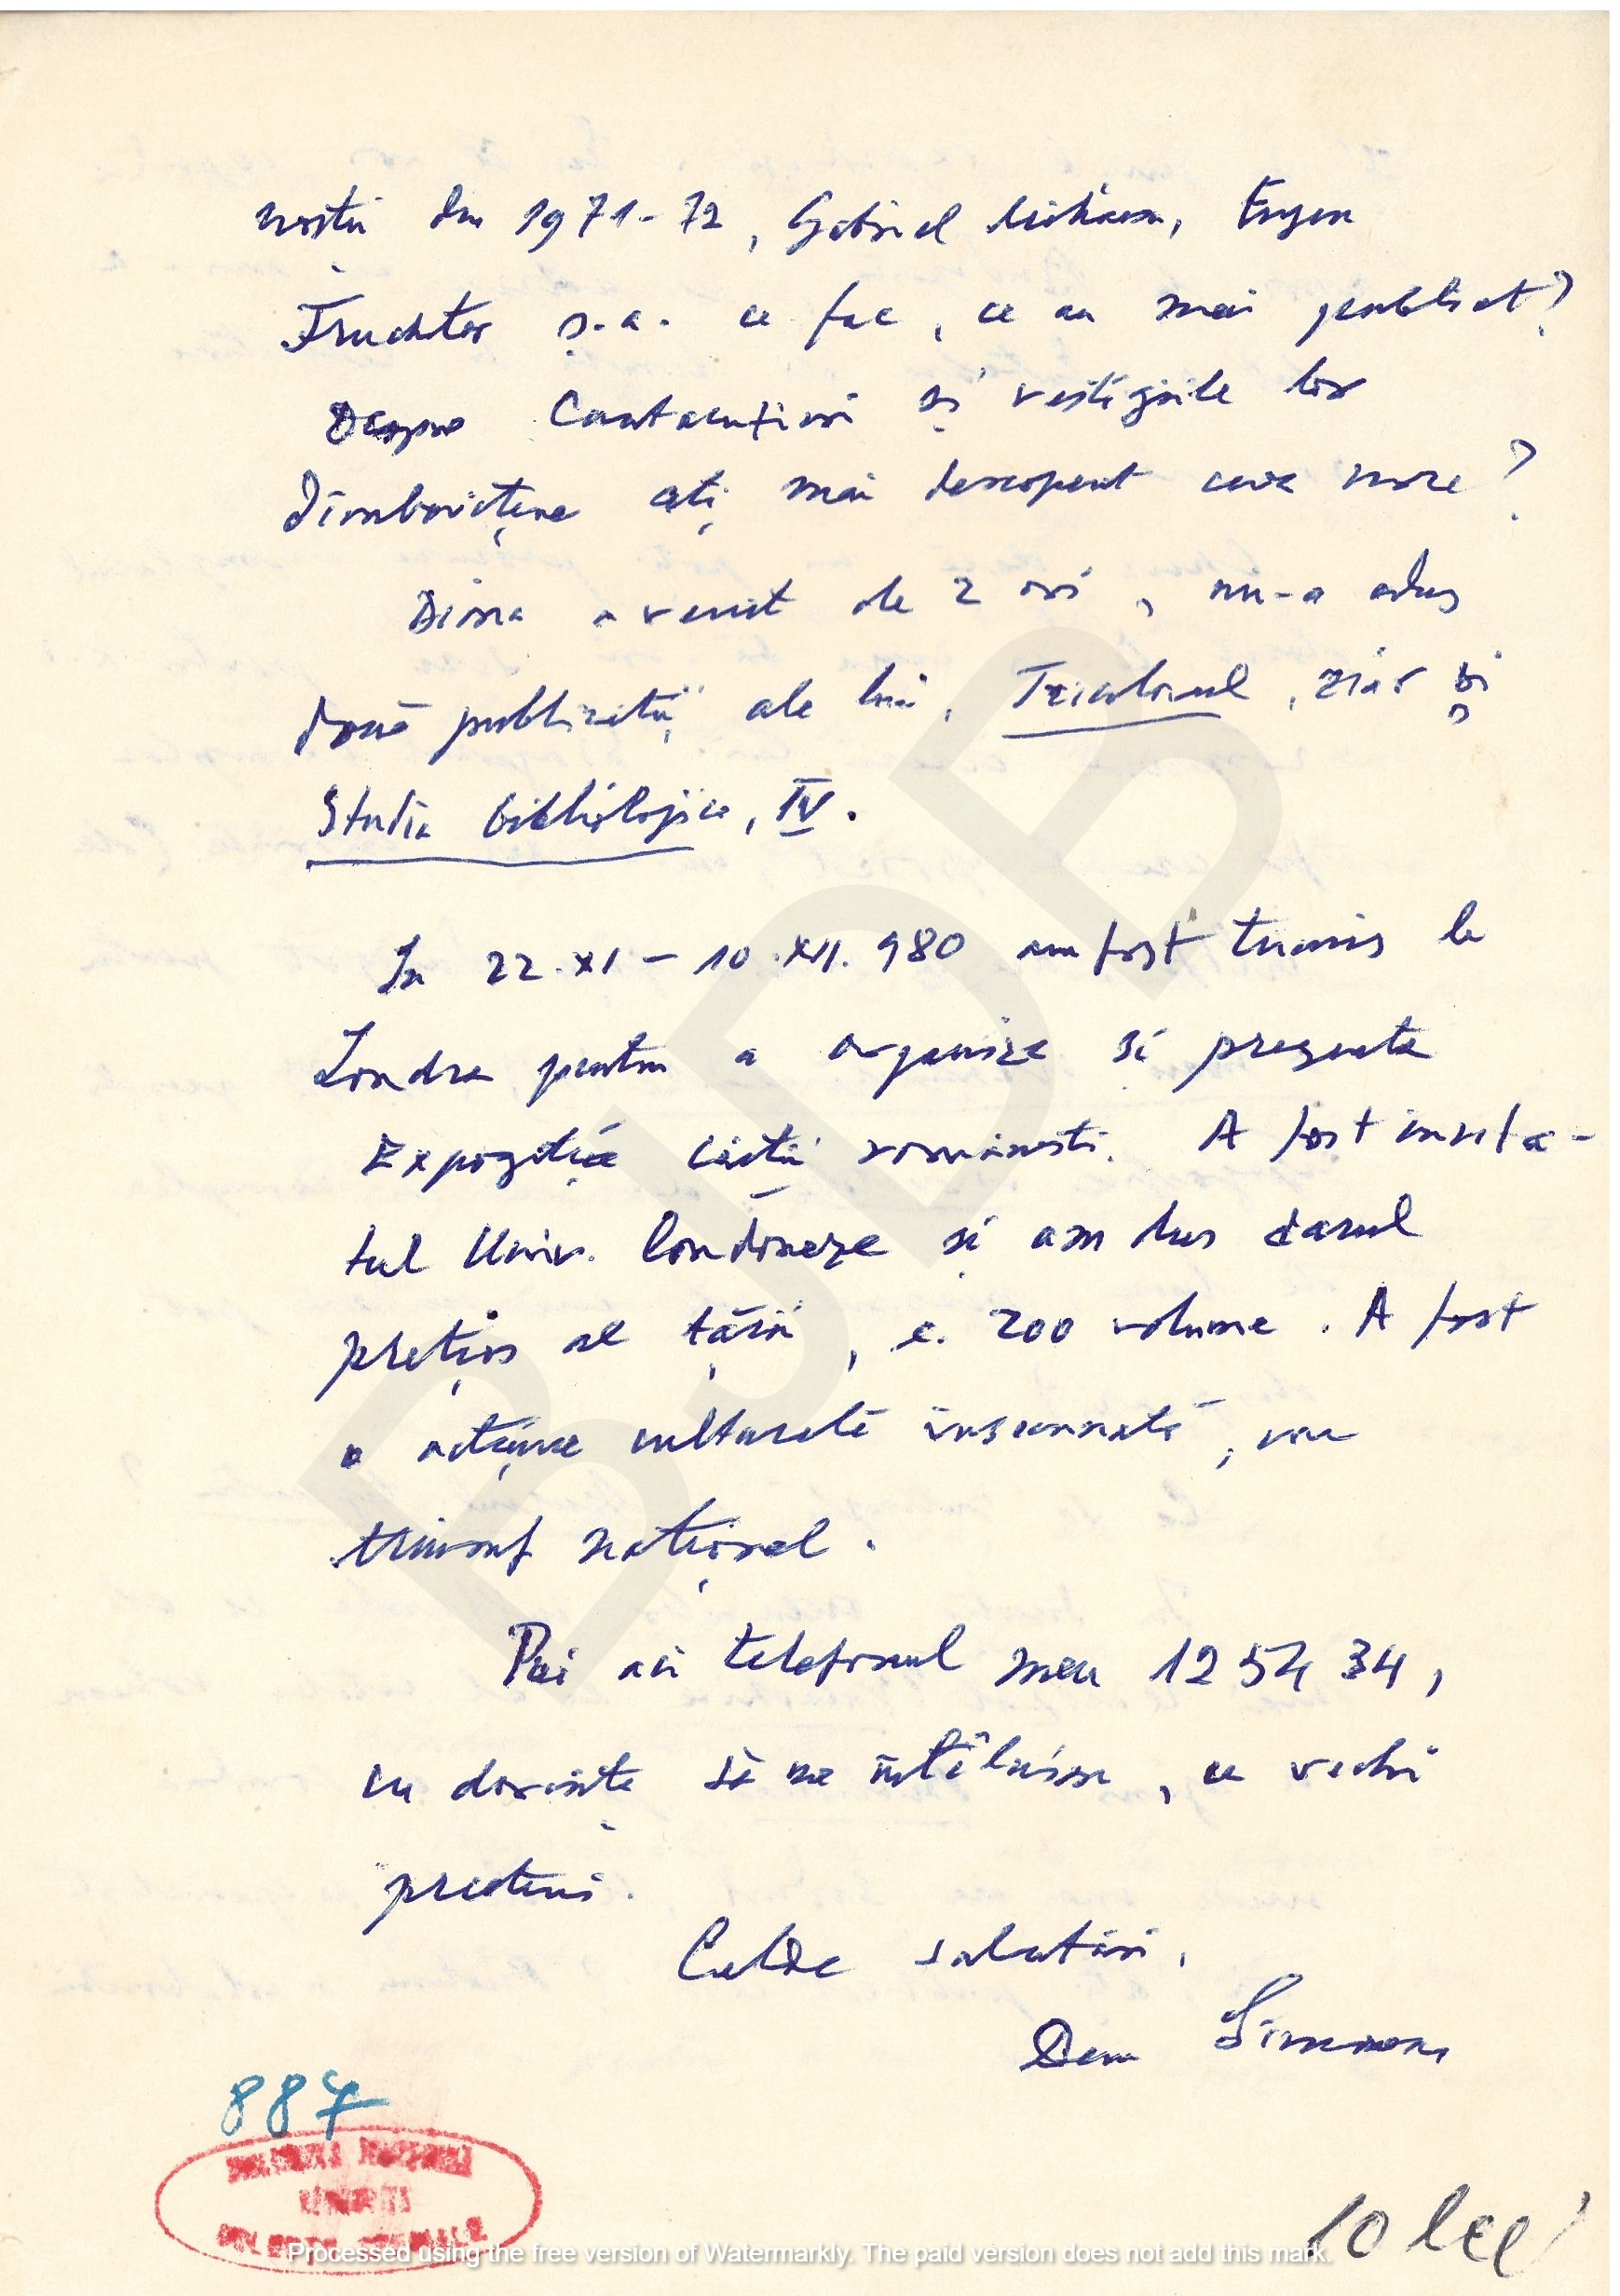 noștri din 1971-72, Gabriel Mihăescu, Eugen
Fruchter ș.a. ce fac, ce au mai publicat?
Despre Cantacuzini și vestigiile lor
dîmbovițene ați mai descoperit ceva nou?
Dima a venit de 2 ori, mi-a adus
două publicații ale lui, Tricolorul, ziar și
Studia bibliologica, IV.
In 22.XI – 10.XII.980 am fost trimis la
Londra pentru a organiza și prezenta
Expoziția cărții românești. A fost invita-
tul Univ. londoneze și am dus darul
prețios al țării, c. 200 volume. A fost
o acțiune culturală însemnată, un
triumf național.
Poi ai telefonul meu 12 54 34,
cu dorința să ne întîlnim, ca vechi
prieteni.
Calde salutări,
Dan Simonescu
887
10 lei
BJDB
Processed using the free version of Watermarkly. The paid version does not add this mark.